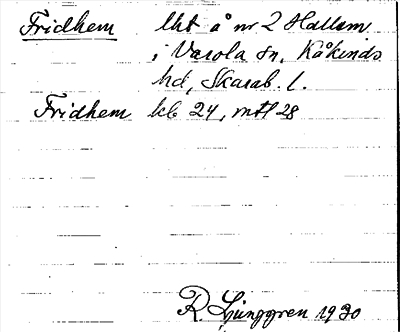 Fridhem lht å nr 2 Hallem
i Varola sn, Kåkinds
hd, Skarab. l.
Fridhem kb 24, mtl 28
R. Ljunggren 1930